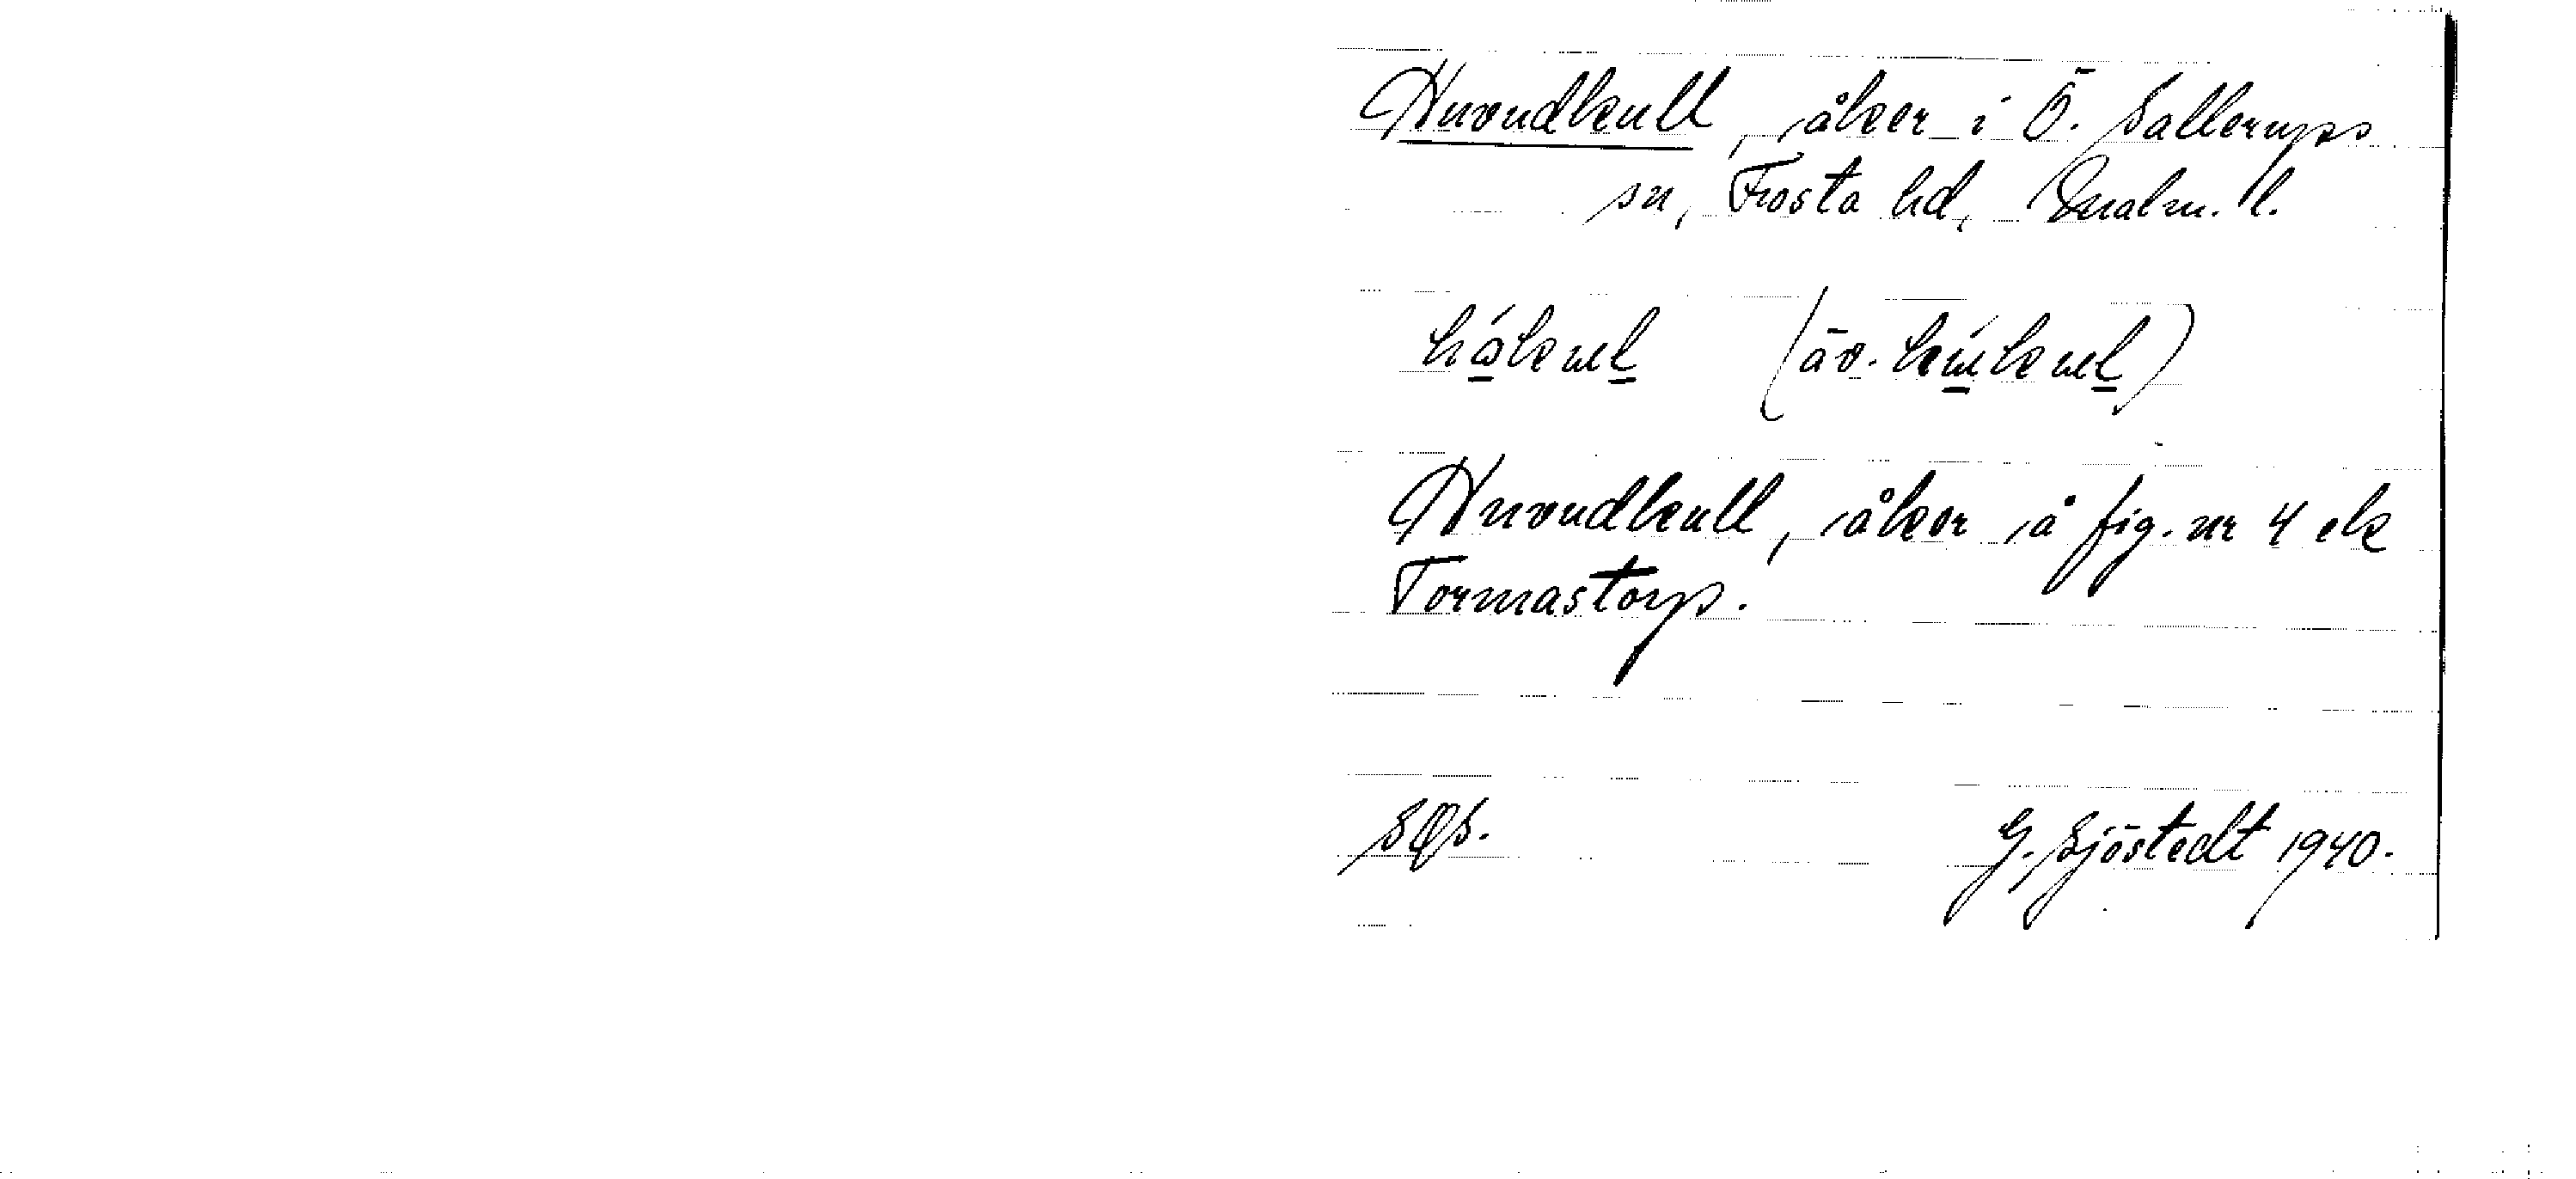 Huvudkull, åker i Ö. Sallerups
sn, Frosta hd, Malm. l.
hákul (äv. húkul)
Huvudkull, åker å fig. nr 4 ek
Tormastorp.
SOS. G. Sjöstedt 1940.